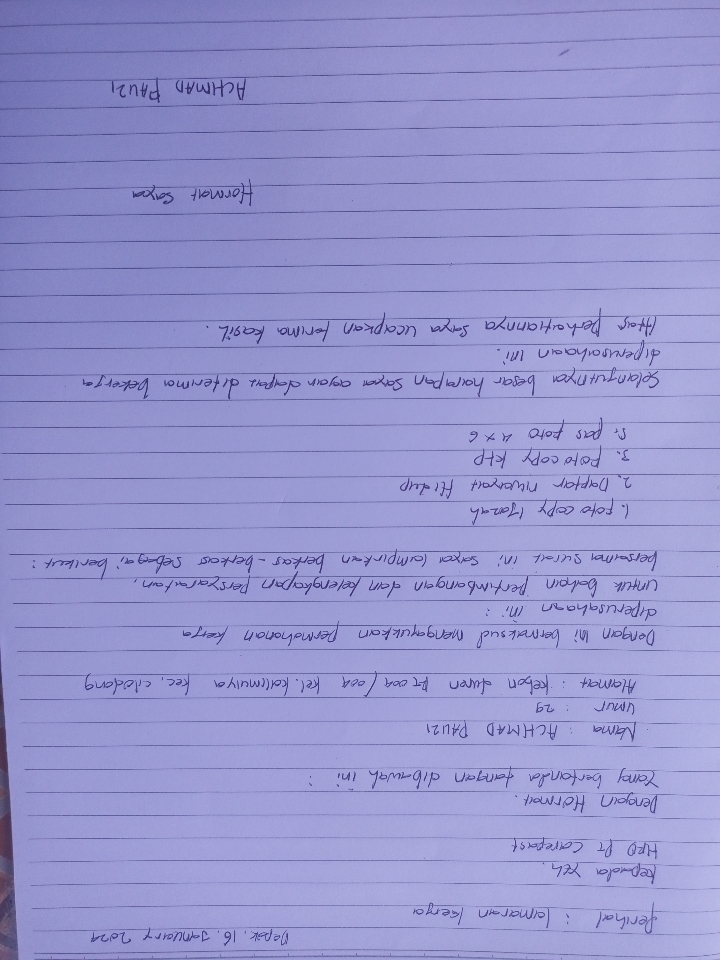 Depok, 16, January 2024
Perihal : lamaran kerja
kepada Yth,
HRD Pt Carepast
Dengan Hormat.
Yang bertanda tangan dibawah ini :
Nama : ACHMAD PAUZI
Umur : 29
Alamat : kebon duren Rt 009 / 009 kel. kalimulya kec. cilodong
Dengan ini bermaksud mengajukan permohonan kerja
diperusahaan ini :
Untuk bahan pertimbangan dan kelengkapan persyaratan,
bersama surat ini saya lampirkan berkas-berkas sebagai berikut :
1. Foto copy Ijazah
2. Daptar riwayat Hidup
3. Foto copy ktp
5. pas foto 4 x 6
Selanjutnya besar harapan saya agar dapat diterima bekerja
diperusahaan ini.
Atas perhatiannya saya ucapkan terima kasih.
Hormat saya
ACHMAD PAUZI